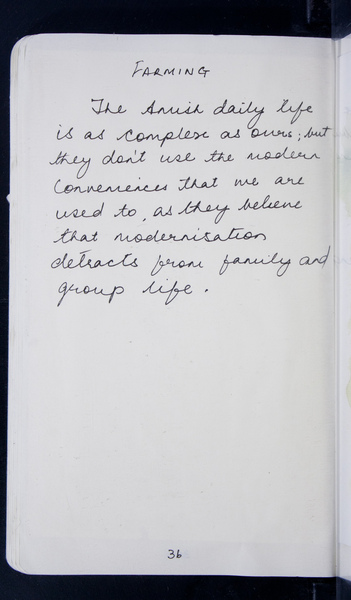 FARMING
The Amish daily life
is as complex as ours; but
they don't use the modern
conveniences that we are
used to, as they believe
that modernisation
detracts from family and
group life.
36